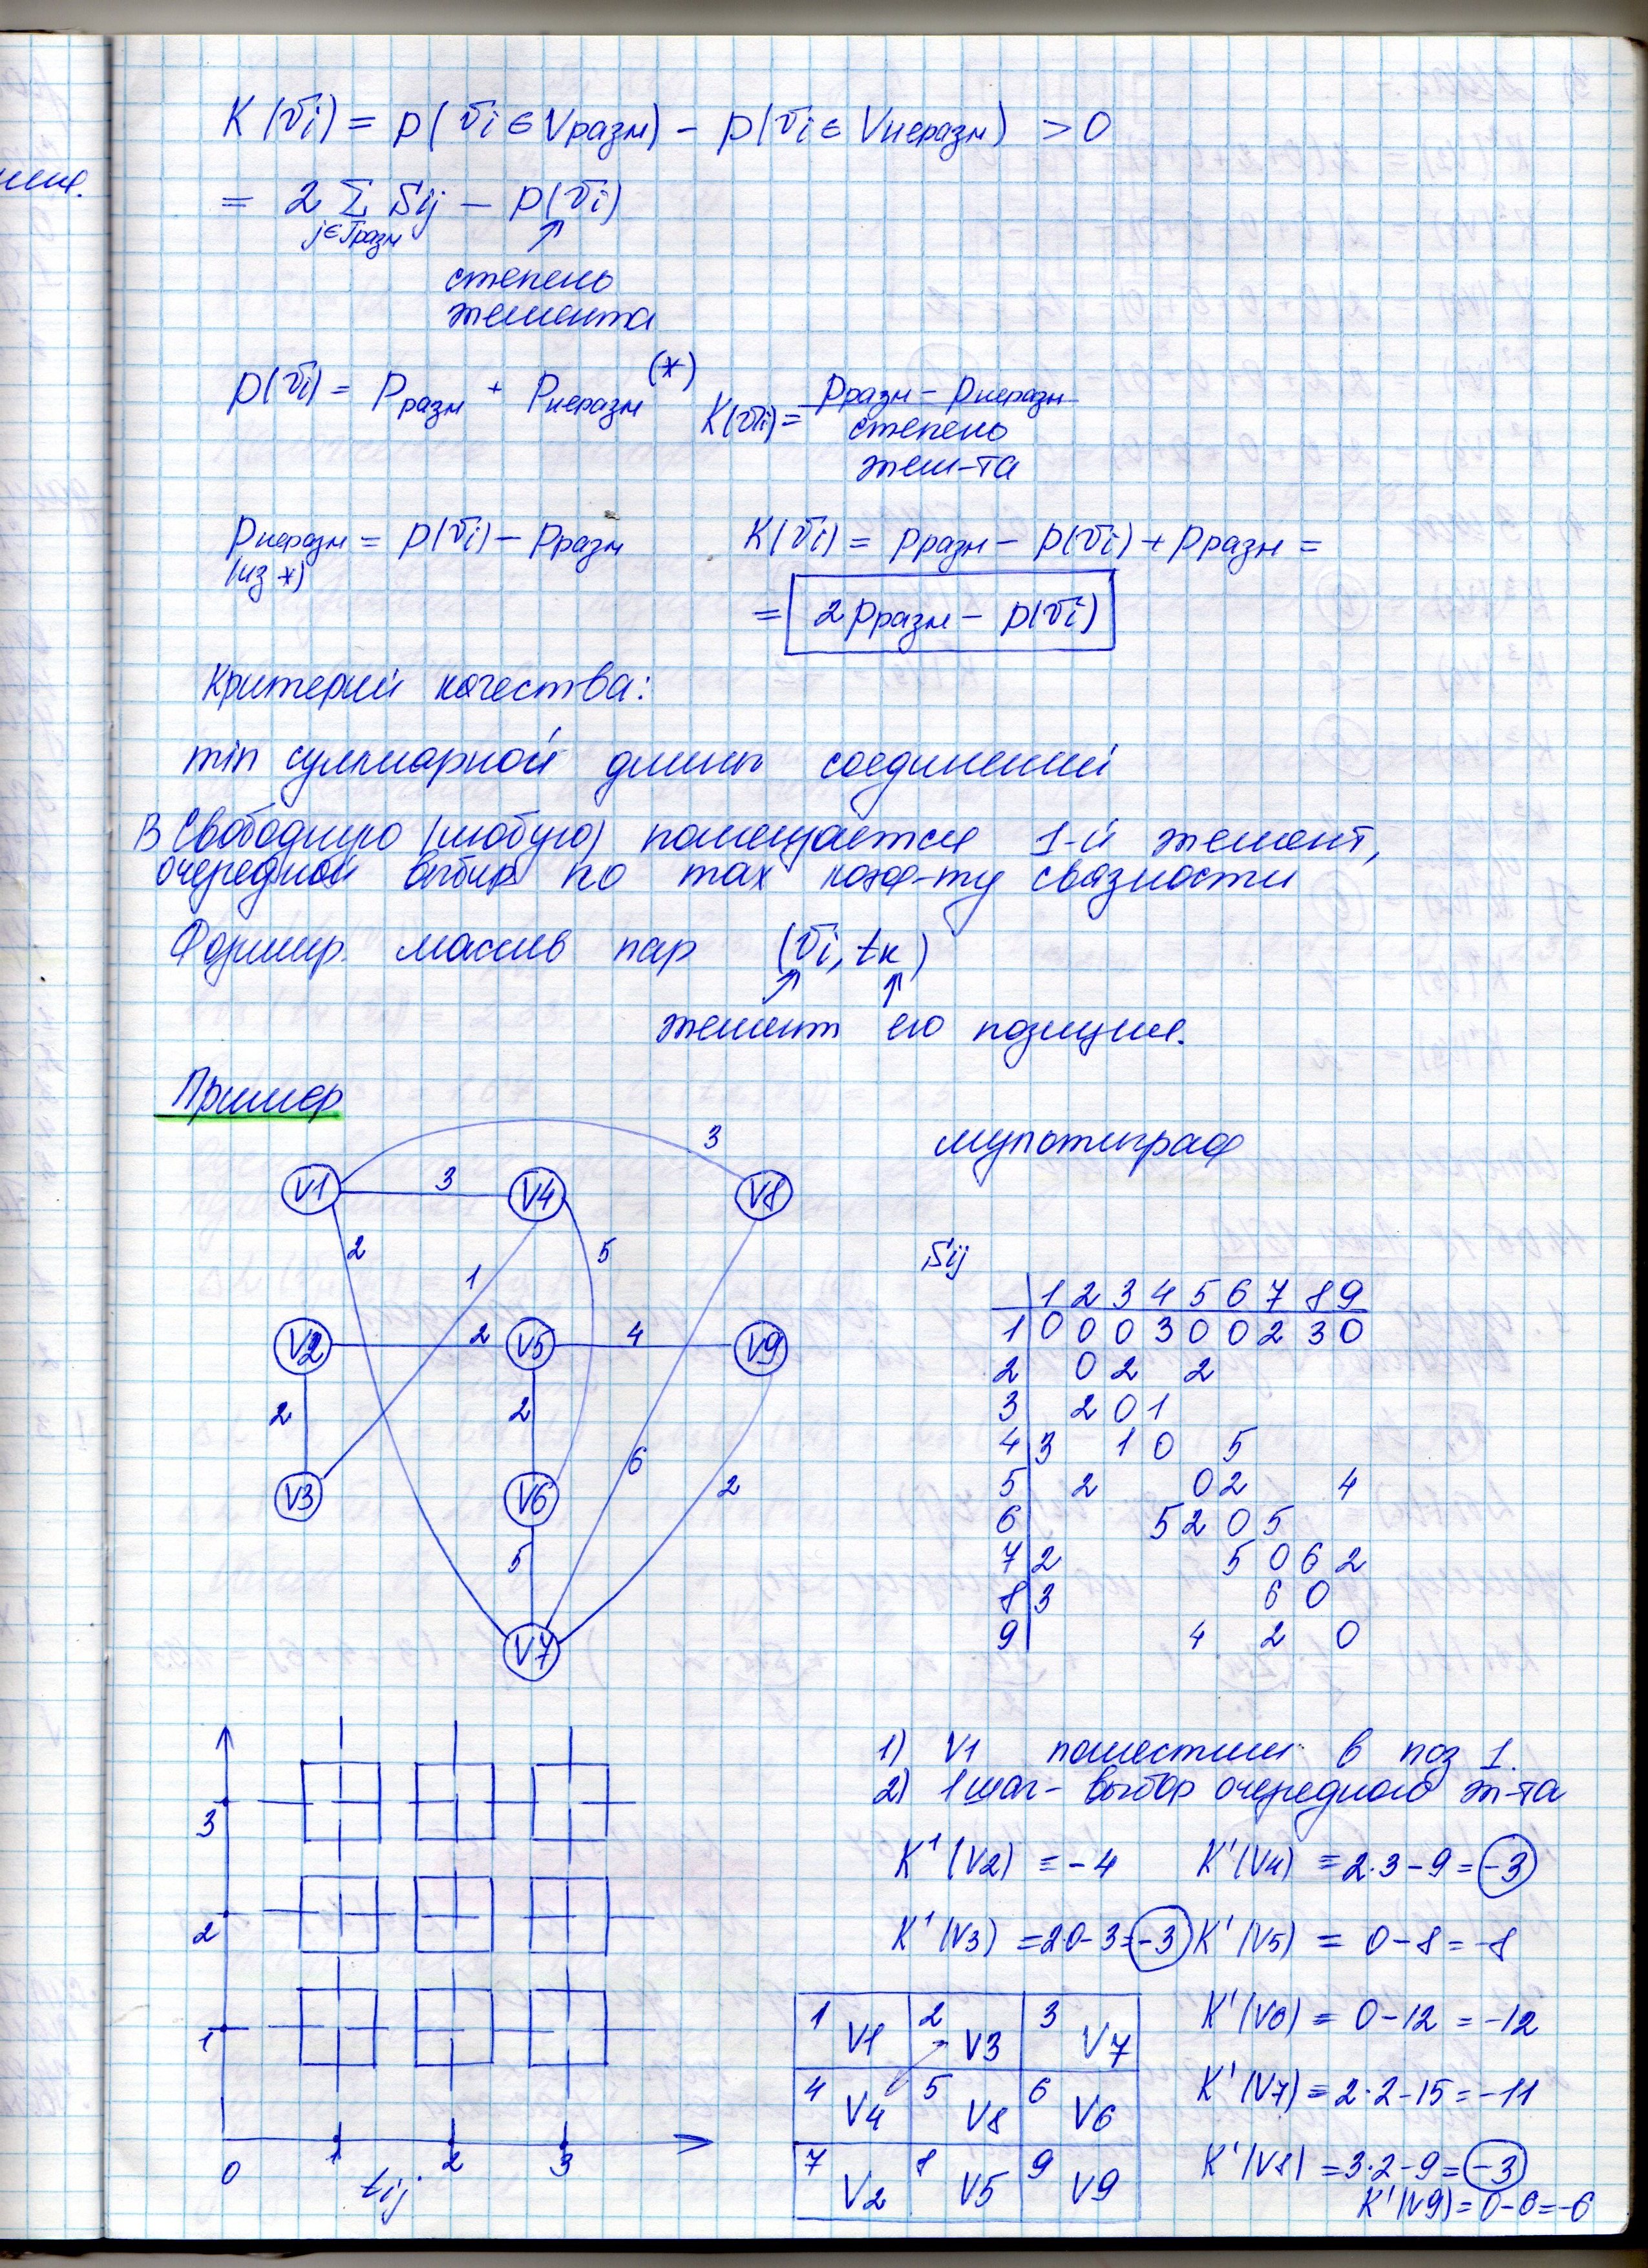 K(vi) = p(vi ∈ Vразм) - p(vi ∈ Vнеразм) > 0
= 2 Σ Sij - p(vi)
j∈Jразм
степень
элемента
p(vi) = Pразм + Pнеразм (*)
K(vi) = pразм - pнеразм
степень
элем-та
pнеразм = p(vi) - pразм
(из *)
K(vi) = pразм - p(vi) + pразм =
= 2pразм - p(vi)
Критерий качества:
min суммарной длины соединений
В свободную (любую) помещается 1-й элемент,
очередной выбир по max коэф-ту связности
Формир. массив пар (vi, tк)
элемент его позиция.
Пример
мультиграф
3
V1 3 V4 V8
2 1 5
V2 2 V5 4 V9
2 2
V3 V6 6 2
5
V7
Sij
1 2 3 4 5 6 7 8 9
1 0 0 0 3 0 0 2 3 0
2 0 2 2
3 2 0 1
4 3 1 0 5
5 2 0 2 4
6 5 2 0 5
7 2 5 0 6 2
8 3 6 0
9 4 2 0
3
2
1
0 1 2 3
tij
1) V1 поместим в поз 1.
2) 1 шаг - выбор очередного эл-та
K¹(V2) = -4 K¹(V4) = 2·3-9 = -3
K¹(V3) = 2·0-3 = -3 K¹(V5) = 0-8 = -8
K¹(V6) = 0-12 = -12
K¹(V7) = 2·2-15 = -11
K¹(V8) = 3·2-9 = -3
K¹(V9) = 0-6 = -6
1 V1 2 V3 3 V7
4 V4 5 V8 6 V6
7 V2 8 V5 9 V9